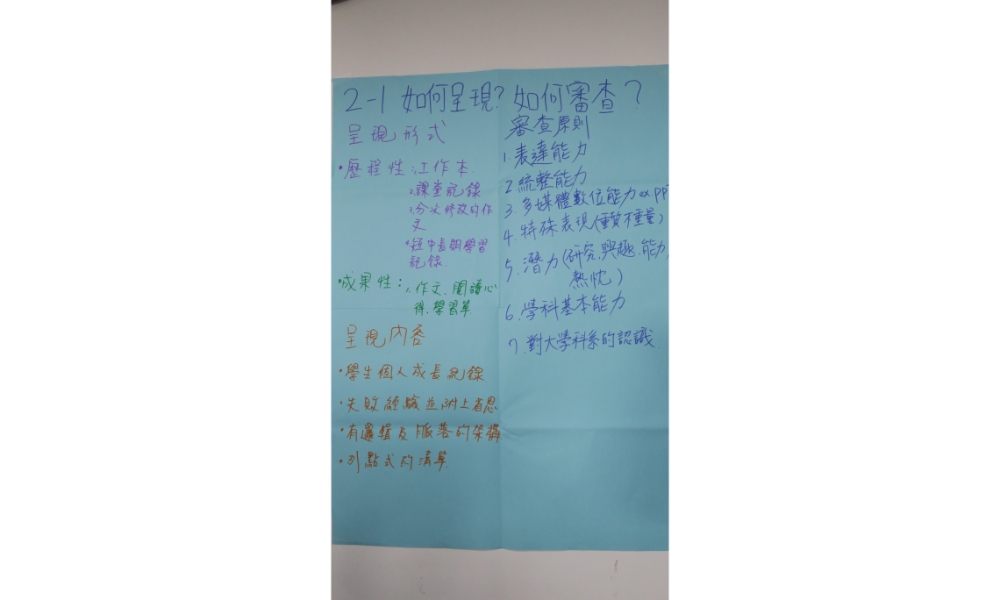 2-1 如何呈現? 如何審查?
呈現形式
·歷程性:工作本
2.課堂紀錄
3.分次修改的作
文
4.短中長期學習
記錄
·成果性:1.作文、閱讀心
得、學習單
呈現內容
·學生個人成長紀錄
·失敗經驗並附上省思
·有邏輯及脈落的架構
·列點式的清單
審查原則
1 表達能力
2 統整能力
3 多媒體數位能力 ex PPT
4 特殊表現(重質不重量)
5.潛力(研究、興趣、能力、
熱忱)
6.學科基本能力
7.對大學科系的認識